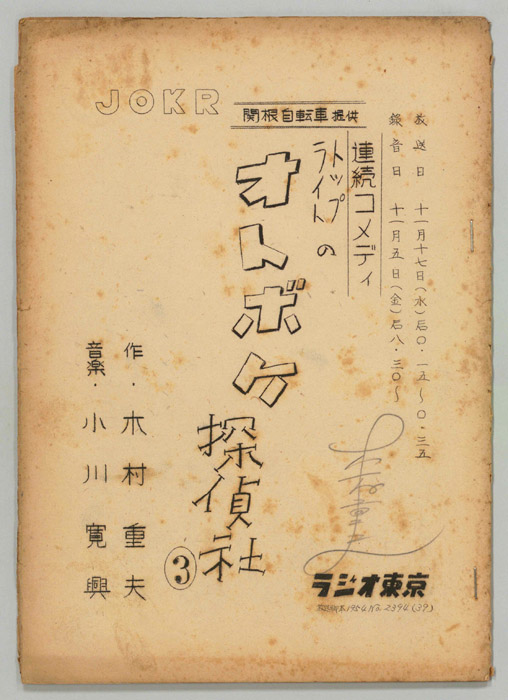 JOKR
関根自転車提供
放送日 十一月十七日(水)后〇・一五〜〇・三五
録音日 十一月五日(金)后八・三〇〜
連続コメディ
トップ
ライトの
オトボケ
探偵社
③
作・木村重夫
音楽・小川寛興
ラジオ東京
1954 No. 2394 (39)